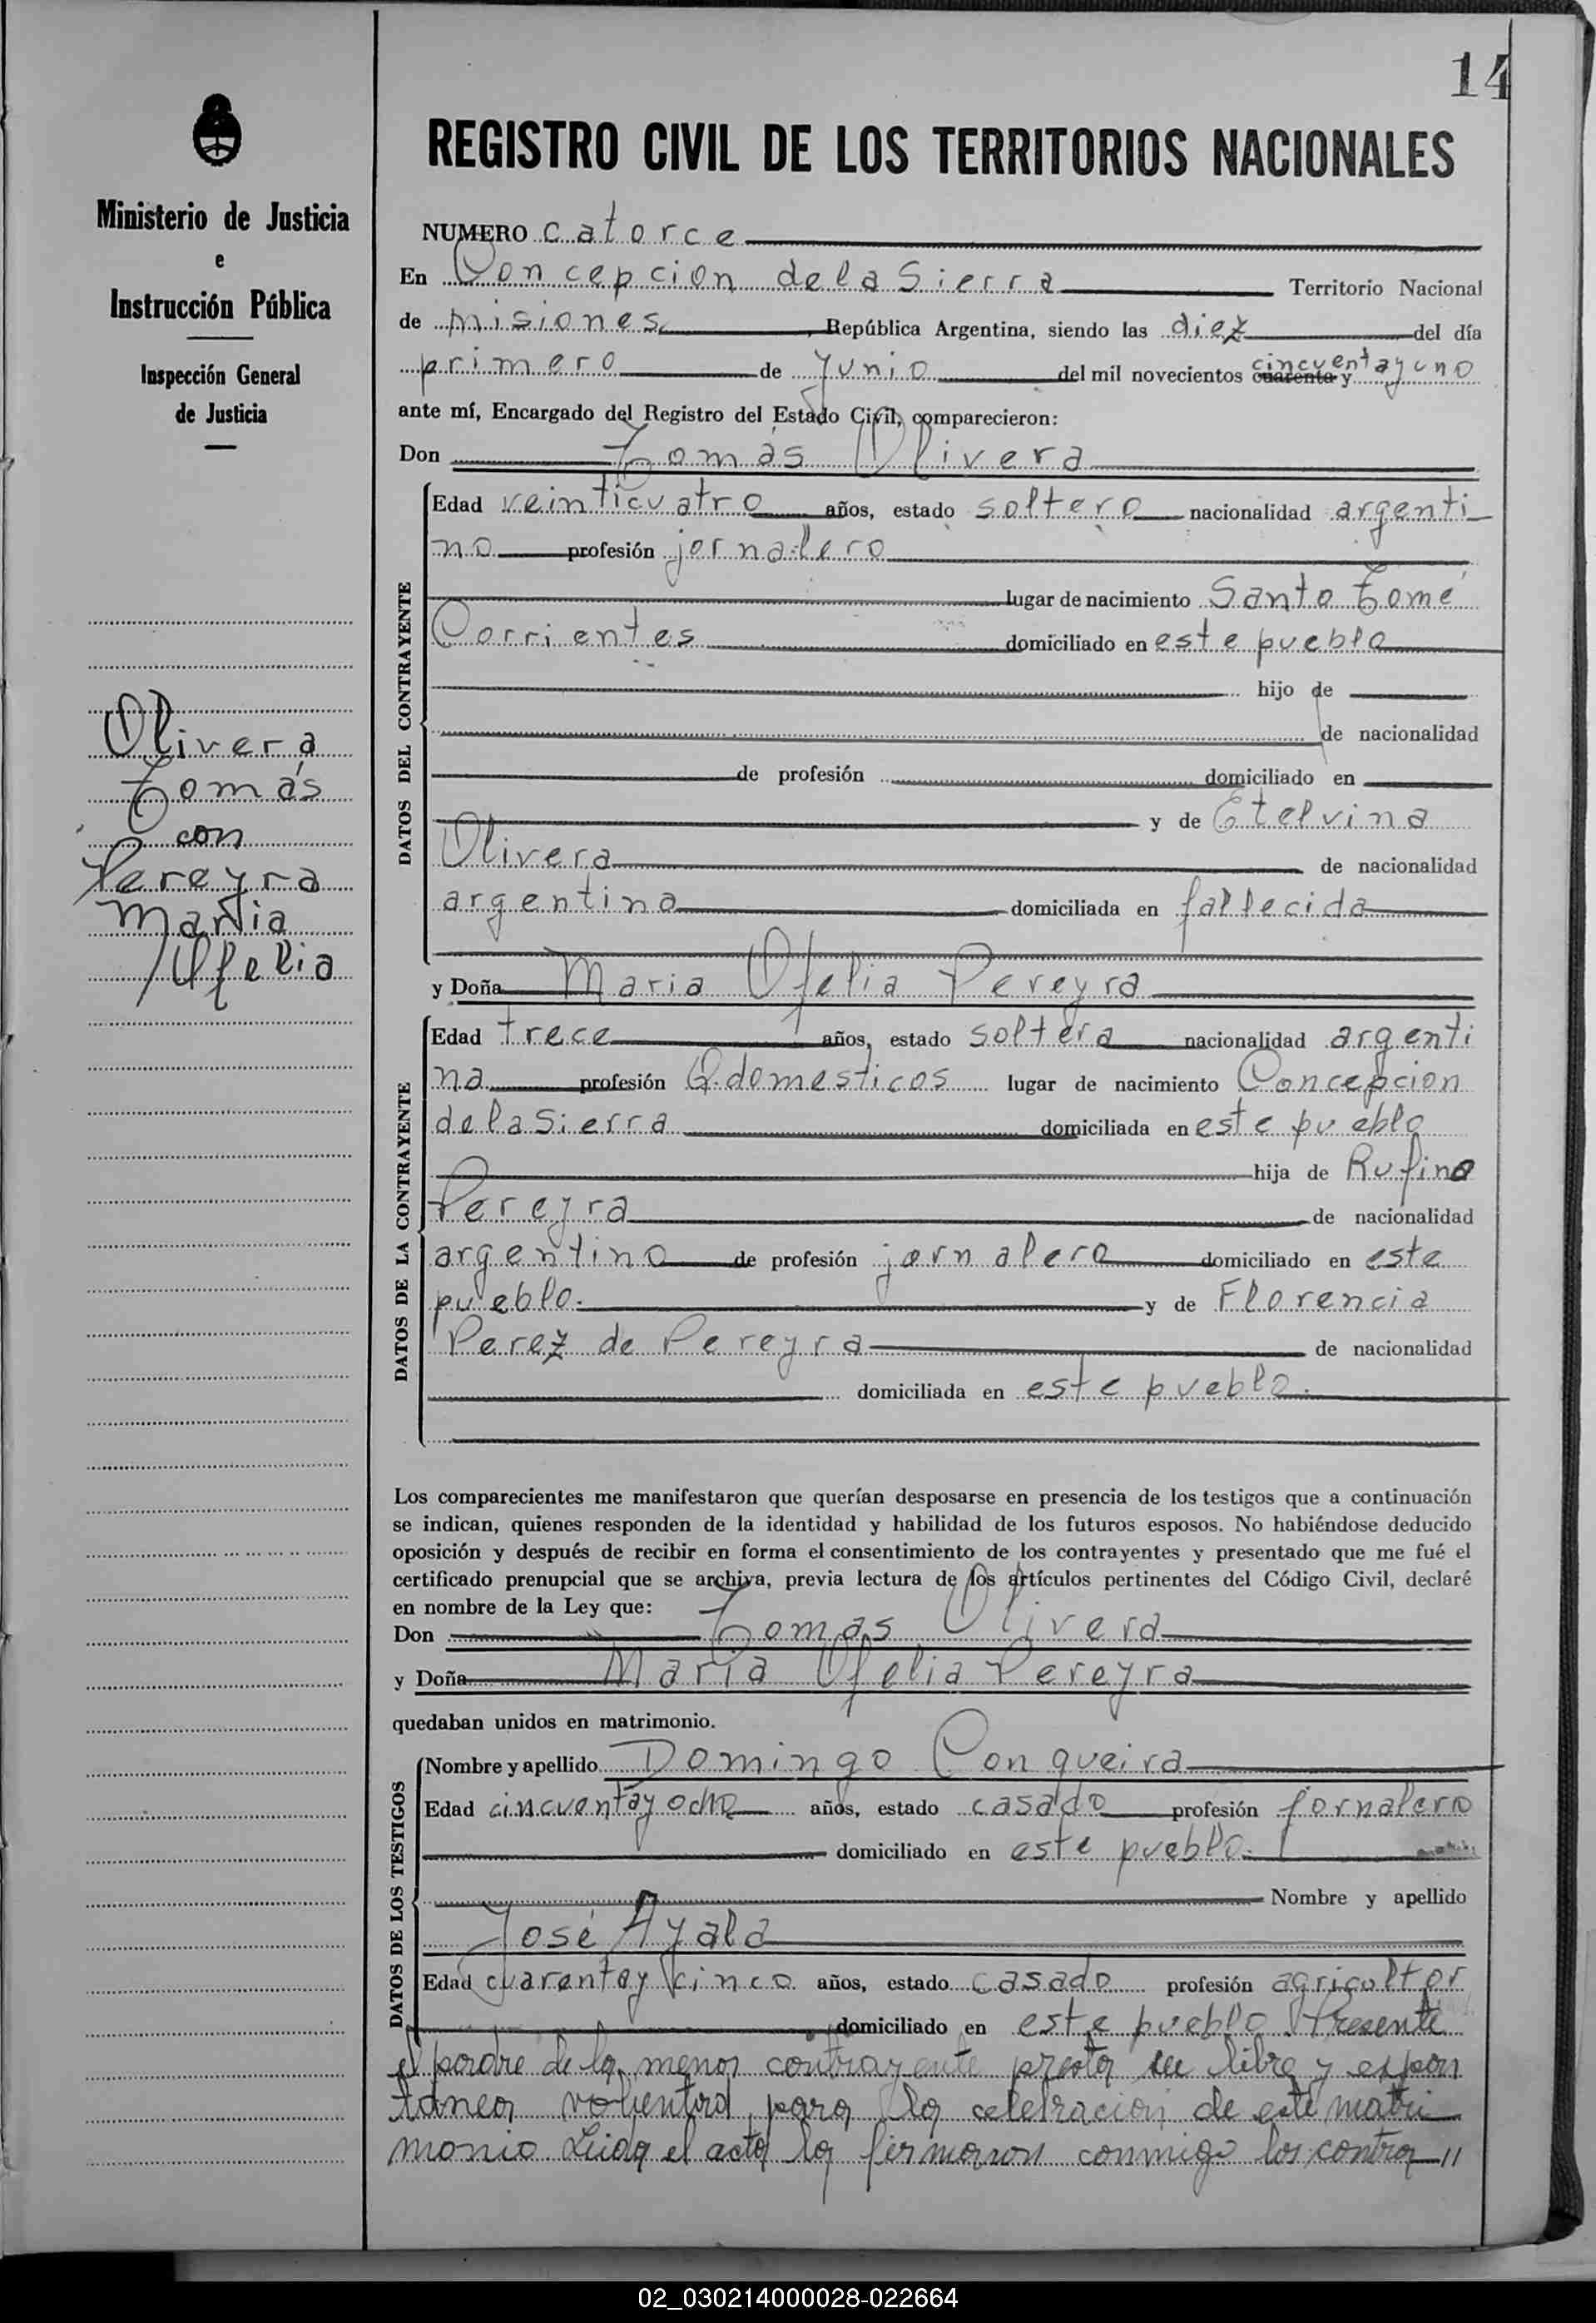 14
Ministerio de Justicia
e
Instrucción Pública
Inspección General
de Justicia
Olivera
Tomás
con
Pereyra
Maria
Ofelia
REGISTRO CIVIL DE LOS TERRITORIOS NACIONALES
NUMERO catorce
En Concepcion de la Sierra Territorio Nacional
de misiones, República Argentina, siendo las diez del día
primero de Junio del mil novecientos cuarenta y cincuentayuno
ante mí, Encargado del Registro del Estado Civil, comparecieron:
Don Tomás Olivera
DATOS DEL CONTRAYENTE
Edad veinticuatro años, estado soltero nacionalidad argenti
no profesión jornalero
lugar de nacimiento Santo Tomé
Corrientes domiciliado en este pueblo
hijo de
de nacionalidad
de profesión domiciliado en
y de Etelvina
Olivera de nacionalidad
argentina domiciliada en fallecida
y Doña Maria Ofelia Pereyra
DATOS DE LA CONTRAYENTE
Edad trece años, estado soltera nacionalidad argenti
na profesión Q. domesticos lugar de nacimiento Concepcion
de la Sierra domiciliada en este pueblo
hija de Rufino
Pereyra de nacionalidad
argentino de profesión jornalero domiciliado en este
pueblo. y de Florencia
Perez de Pereyra de nacionalidad
domiciliada en este pueblo.
Los comparecientes me manifestaron que querían desposarse en presencia de los testigos que a continuación
se indican, quienes responden de la identidad y habilidad de los futuros esposos. No habiéndose deducido
oposición y después de recibir en forma el consentimiento de los contrayentes y presentado que me fué el
certificado prenupcial que se archiva, previa lectura de los artículos pertinentes del Código Civil, declaré
en nombre de la Ley que:
Don Tomas Olivera
y Doña Maria Ofelia Pereyra
quedaban unidos en matrimonio.
DATOS DE LOS TESTIGOS
Nombre y apellido Domingo Conqueira
Edad cincuentayocho años, estado casado profesión jornalero
domiciliado en este pueblo.
Nombre y apellido
José Ayala
Edad cuarentay cinco años, estado casado profesión agricultor
domiciliado en este pueblo. Presente
el padre de la menor contrayente presta su libre y espon
tanea voluentad para la celebracion de este matri
monio. Leida el acta la firmaron conmigo los contra //
02_030214000028-022664